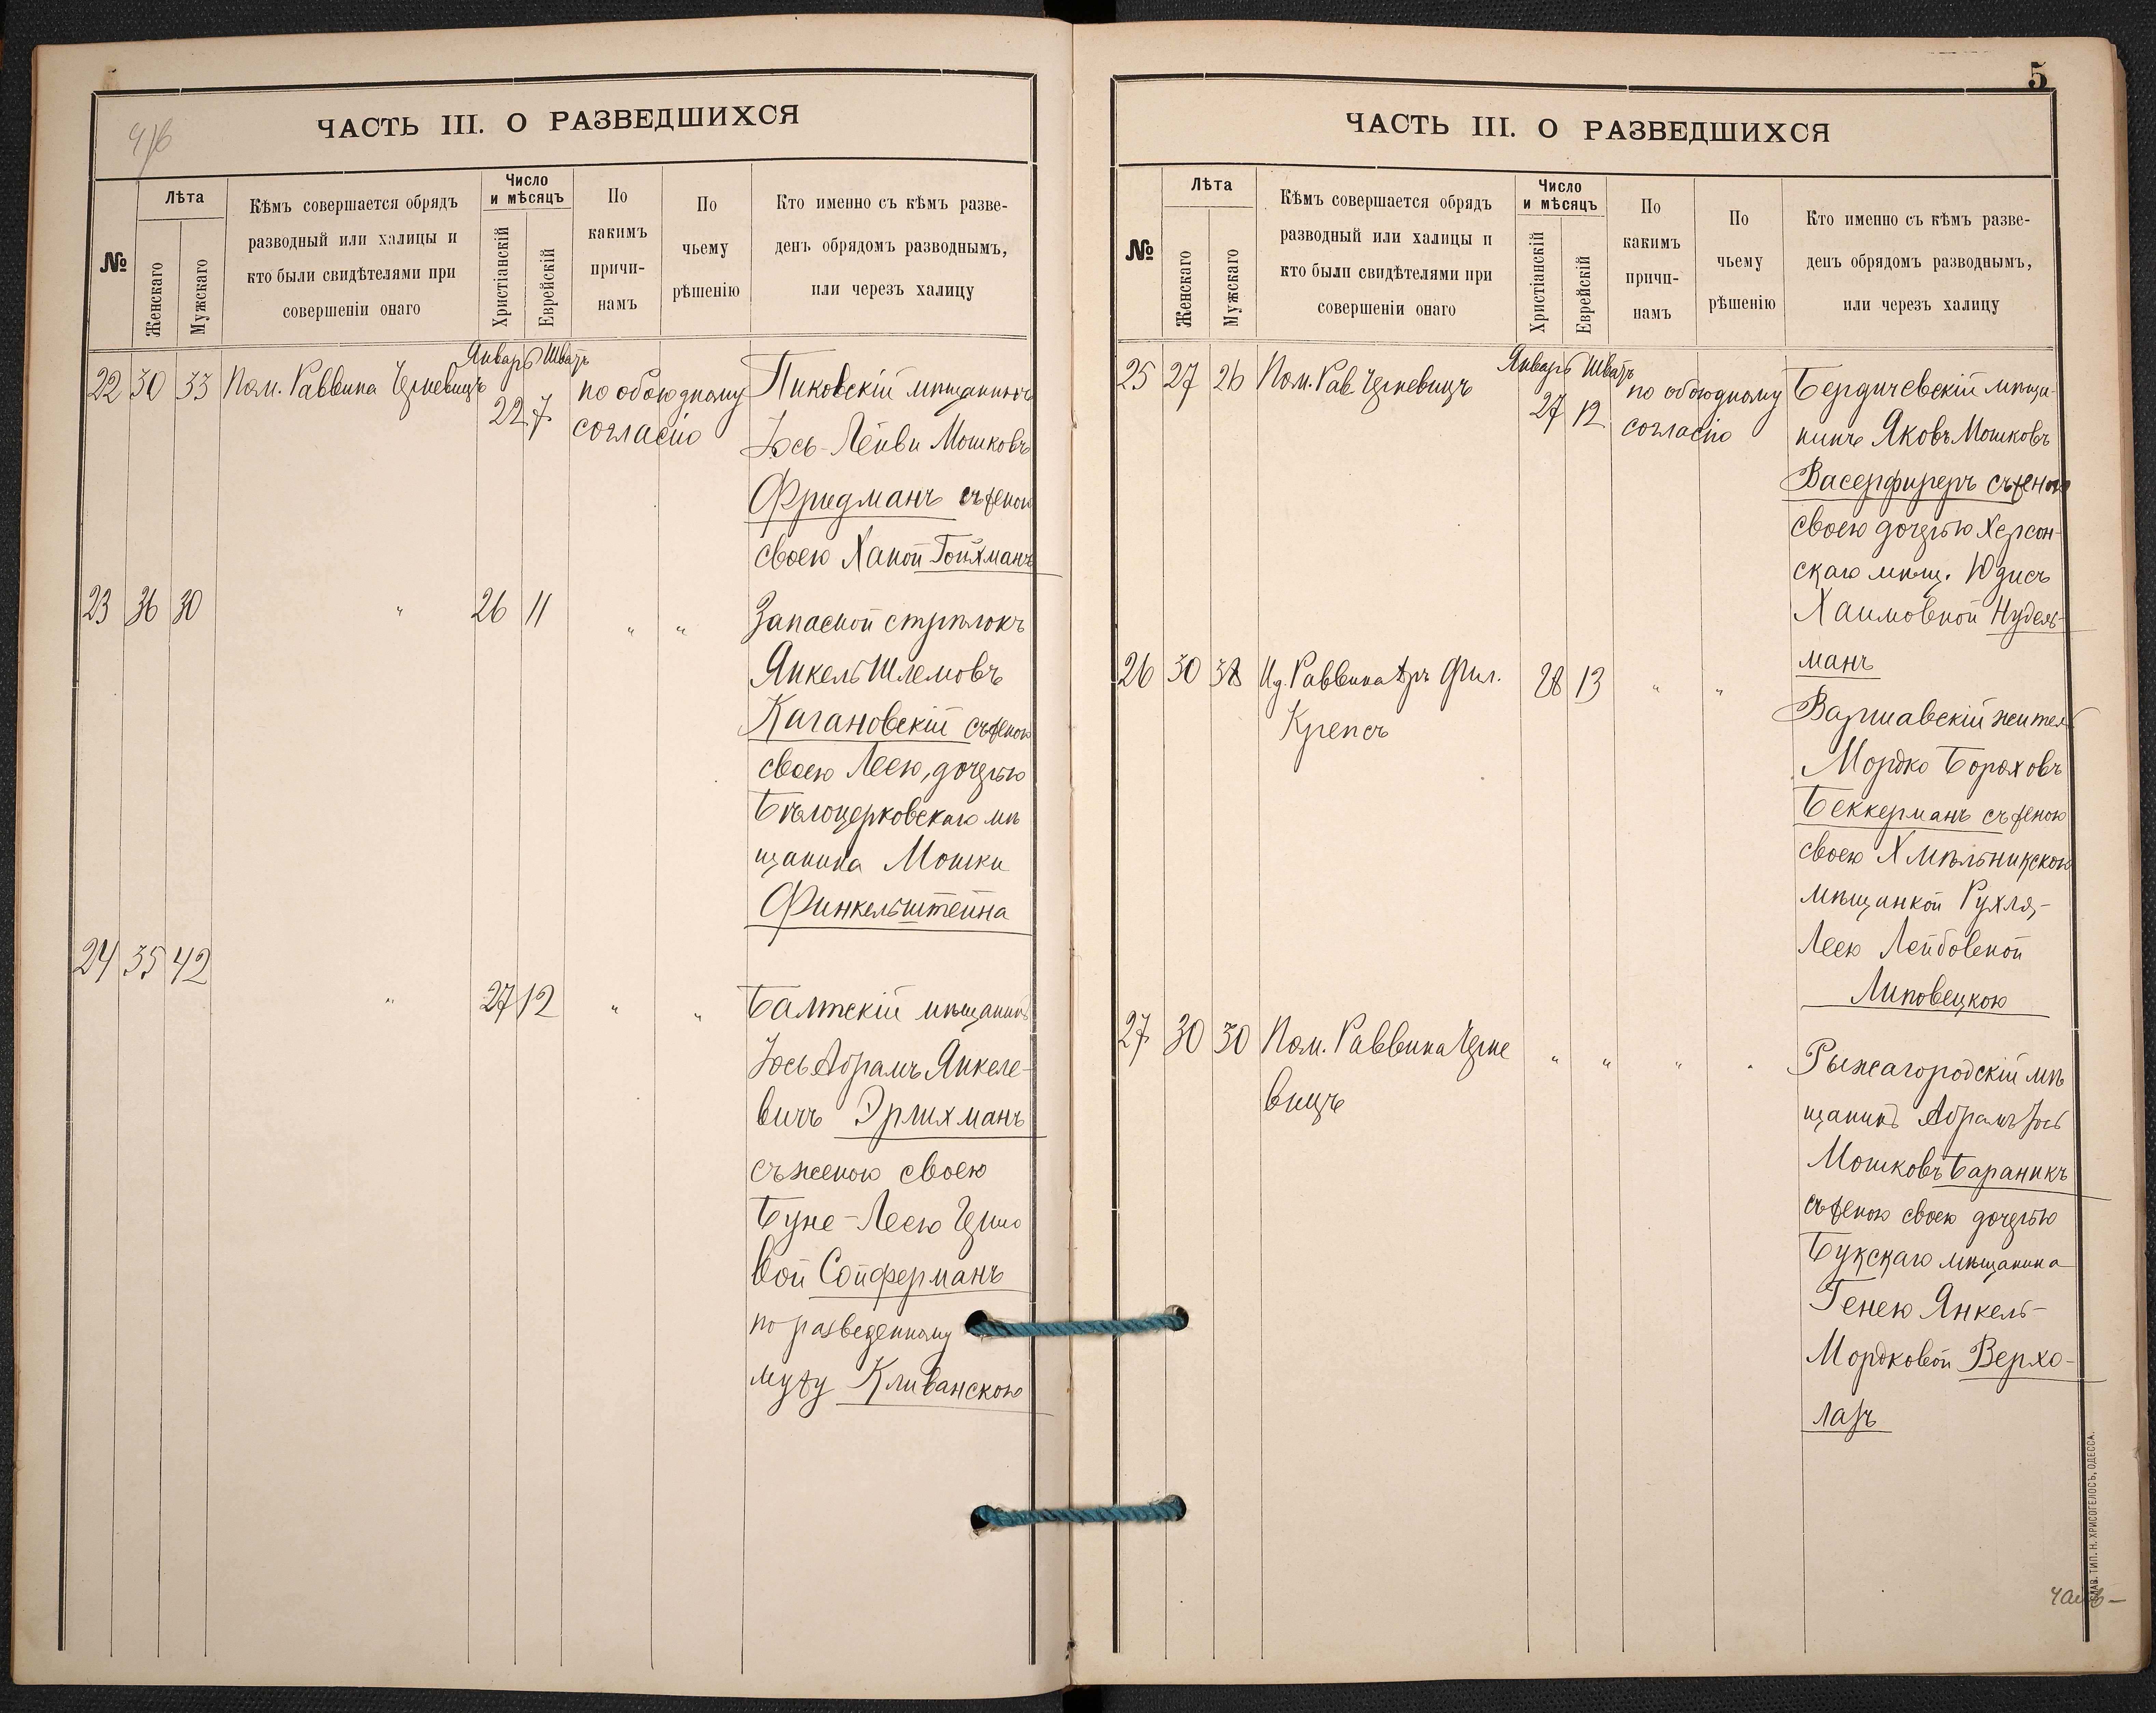 ЧАСТЬ III. О РАЗВЕДШИХСЯ
№
Лѣта
Женскаго
Мужскаго
Кѣмъ совершается обрядъ
разводный или халицы и
кто были свидѣтелями при
совершеніи онаго
Число
и мѣсяцъ
Христіанскій
Еврейскій
По
какимъ
причи-
намъ
По
чьему
рѣшенію
Кто именно съ кѣмъ разве-
денъ обрядомъ разводнымъ,
или черезъ халицу
Январь Шватъ
22 30 33 Пом. Раввина Черневицъ 22 7 по обоюдному Пиковскій мѣщанинъ
согласію Іось-Лейви Мошковъ
Фридманъ съ женою
своею Ханой Гойхманъ
23 36 30 " 26 11 " " Запасной стрѣлокъ
Янкель Шлемовъ
Кагановскій съ женою
своею Леею, дочерью
Бѣлоцерковскаго мѣ
щанина Мошки
Финкельштейна
24 35 42
" 27 12 " " Балтскій мѣщанинъ
Іось Абрамъ Янкеле-
вичъ Эрлихманъ
съ женою своею
Буне-Леею
вой Сойферманъ
по разведенному
мужу Кливанскою
5
ЧАСТЬ III. О РАЗВЕДШИХСЯ
№
Лѣта
Женскаго
Мужскаго
Кѣмъ совершается обрядъ
разводный или халицы и
кто были свидѣтелями при
совершеніи онаго
Число
и мѣсяцъ
Христіанскій
Еврейскій
По
какимъ
причи-
намъ
По
чьему
рѣшенію
Кто именно съ кѣмъ разве-
денъ обрядомъ разводнымъ,
или черезъ халицу
Январь Шватъ
25 27 26 Пом. Рав. Черневицъ 27 12 по обоюдному Бердичевскій мѣща-
согласію нинъ Яковъ Мошковъ
Васерфиреръ съ женою
своею дочерью Херсон-
скаго мѣщ. Юдисъ
Хаимовной Нудель-
манъ
26 30 38 И.д. Раввина Фил. 28 13 " "
Крепсъ
Варшавскій житель
Мордко Бороховъ
Беккерманъ съ женою
своею Хмѣльникскою
мѣщанкой Рухля-
Леею Лейбовной
Липовецкою
27 30 30 Пом. Раввина Черне " " " " Рыжагородскій мѣ
вицъ щанинъ Абрамъ Іось
Мошковъ Бараникъ
съ женою своею дочерью
Букскаго мѣщанина
Генею Янкель-
Мордковой Верхо-
лазъ
СЛАВ. ТИП. Н. ХРИСОГЕЛОСЪ, ОДЕССА.